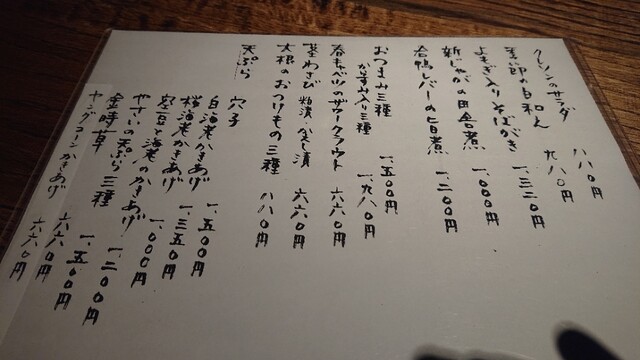 クレソンのサラダ 八八〇円
季節の白和え 九八〇円
よもぎ入りそばがき 一、三二〇円
新じゃがの田舎煮 一、〇〇〇円
若鴨レバーの旨煮 一、二〇〇円
おつまみ三種 一、五〇〇円
からすみ入り三種 一、九八〇円
春キャベツのザワークラウト 六六〇円
茎わさび 粕漬 だし漬 六六〇円
大根のおつけもの三種 八八〇円
天ぷら
穴子 一、五〇〇円
白海老かきあげ 一、三五〇円
桜海老かきあげ 一、〇〇〇円
空豆と海老のかきあげ 一、二〇〇円
やさいの天ぷら三種 一、五〇〇円
金時草 六六〇円
ヤングコーンかきあげ 六六〇円